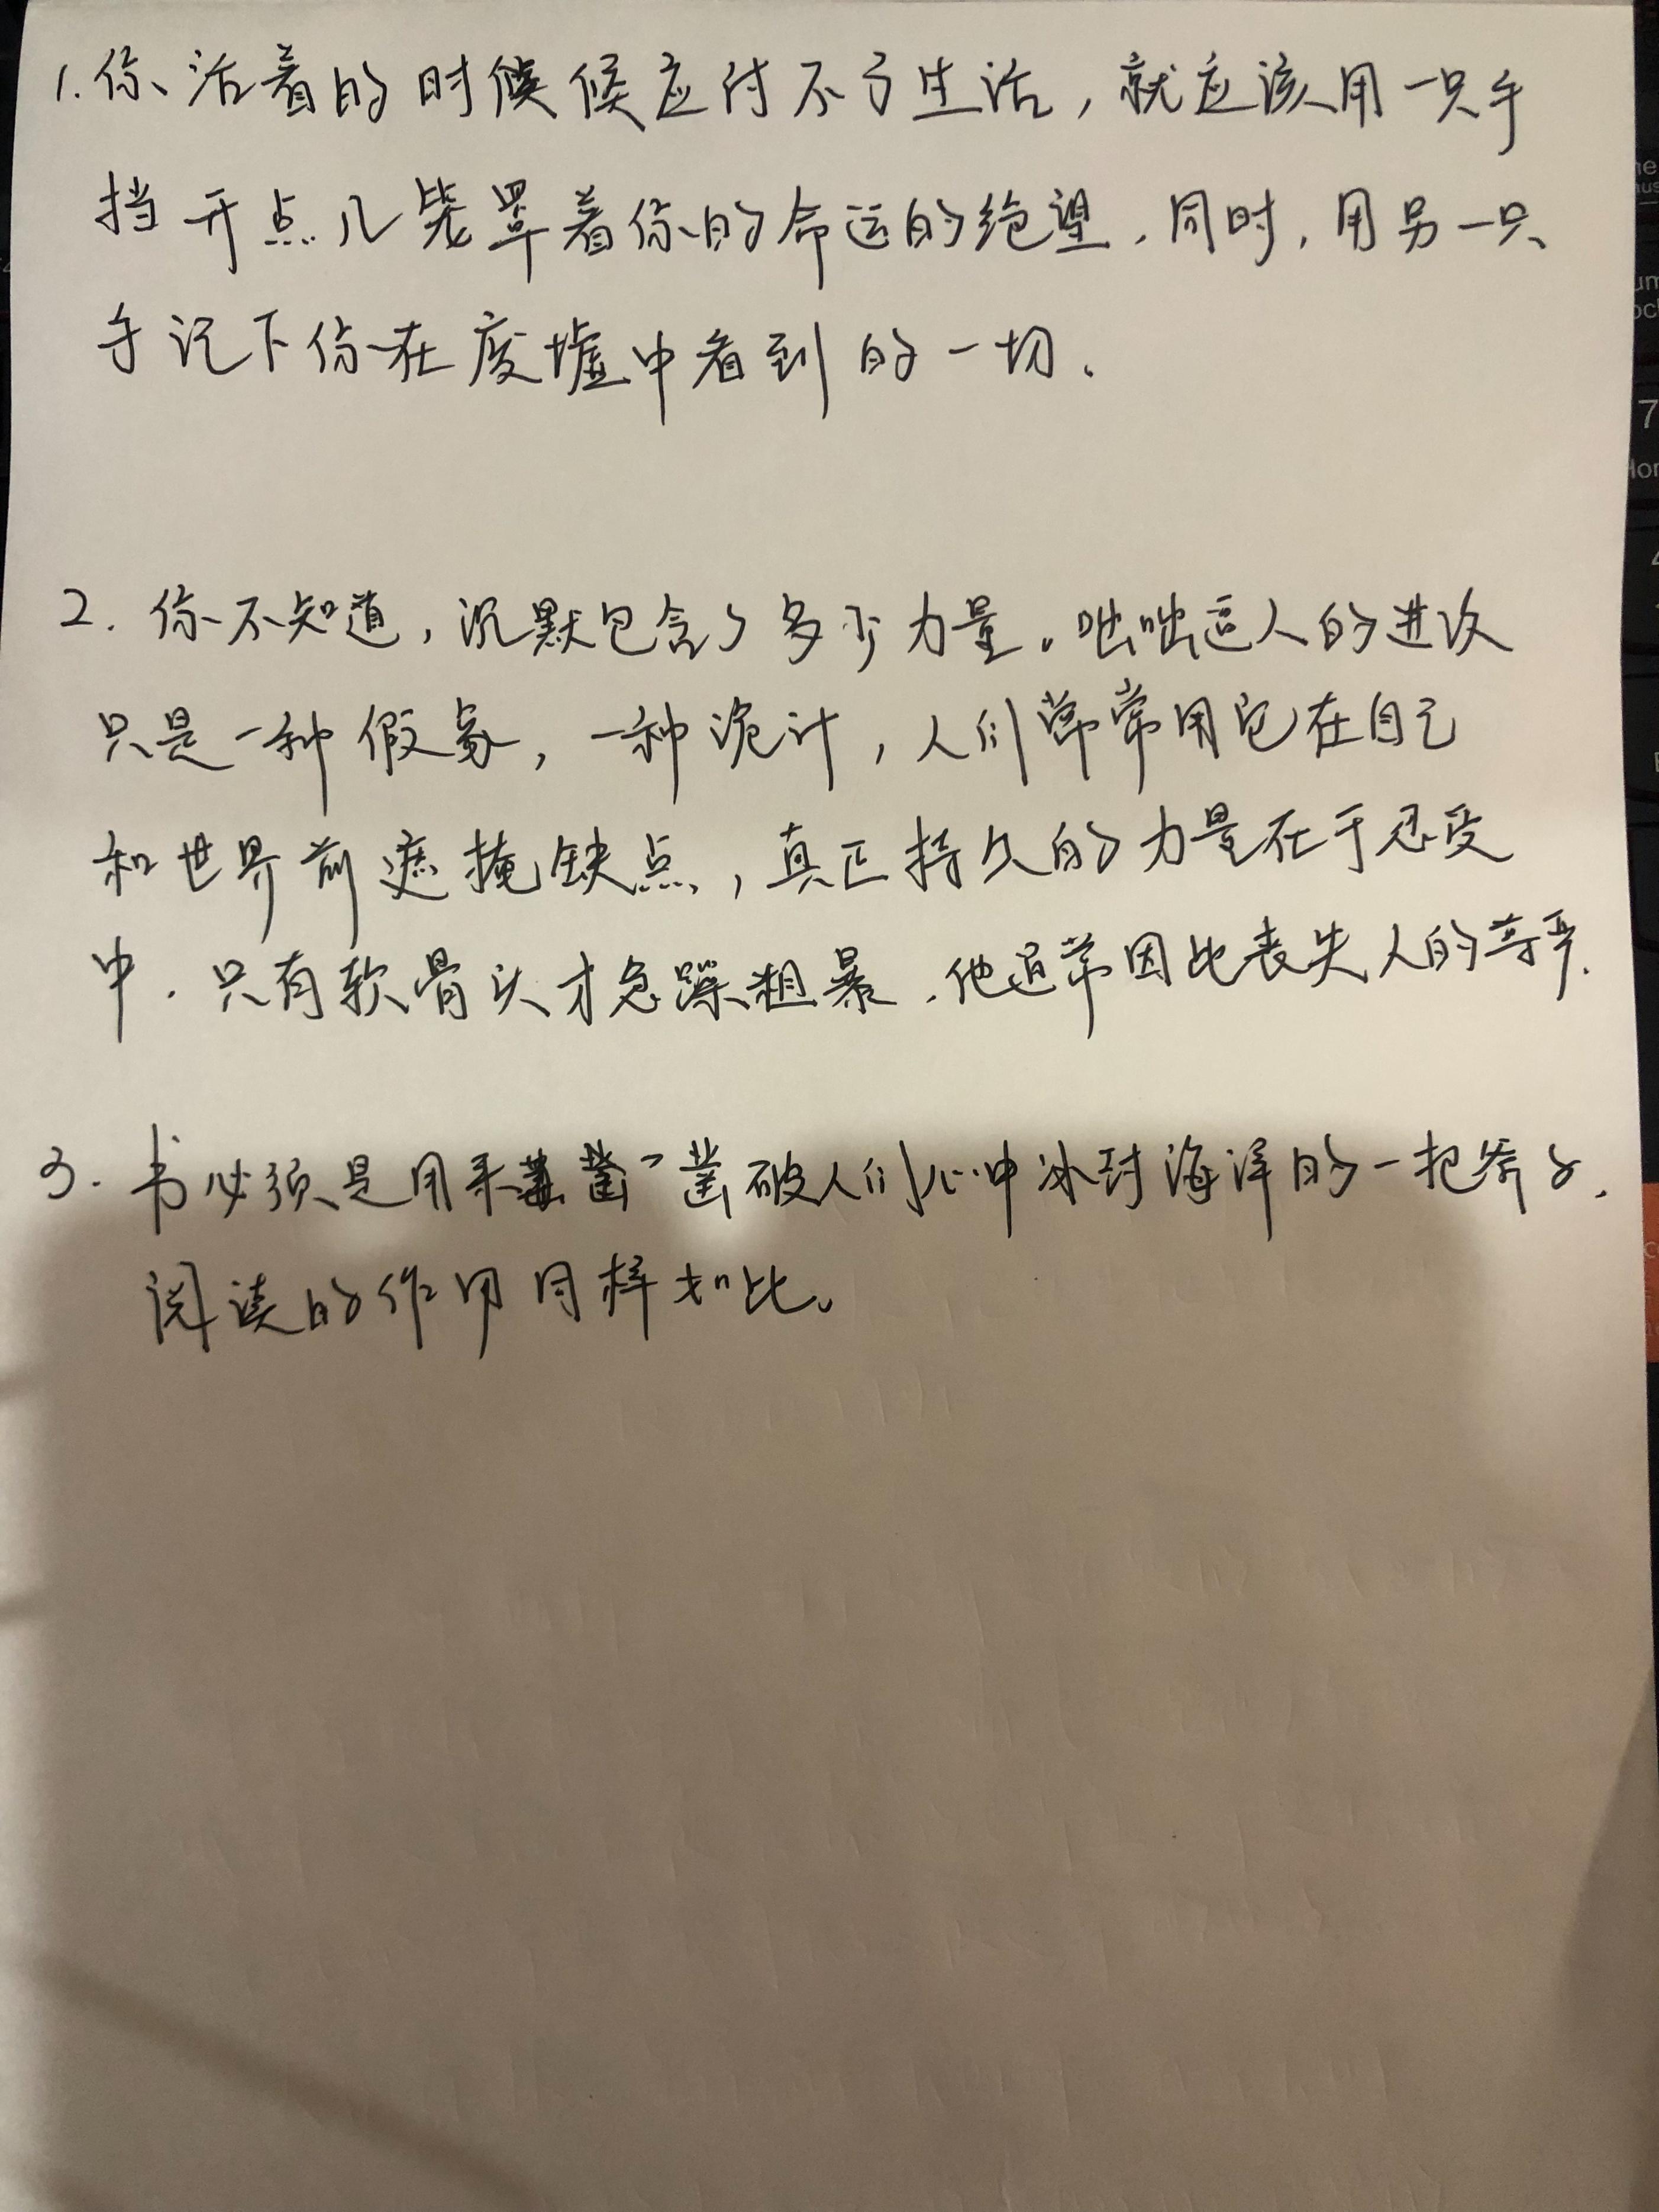 1.你活着的时候候应付不了生活，就应该用一只手
挡开点儿笼罩着你的命运的绝望，同时，用另一只
手记下你在废墟中看到的一切.
2. 你不知道，沉默包含了多少力量。咄咄逼人的进攻
只是一种假象，一种诡计，人们常常用它在自己
和世界前遮掩缺点，真正持久的力量在于忍受
中.只有软骨头才急躁粗暴.他通常因此丧失人的尊严.
3. 书必须是用来凿凿破人们心中冰封海洋的一把斧子,
阅读的作用同样如此。